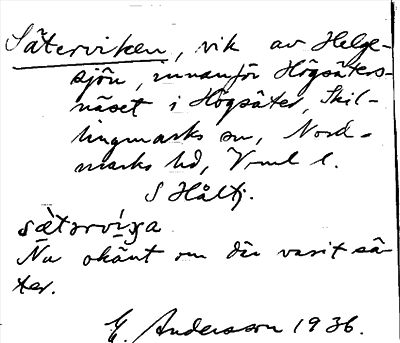 Säterviken, vik av Helge-
sjön, innanför Högsäters-
näset i Högsäter, Skil-
lingmarks sn, Nord-
marks hd, Vrml l.
S Håltj.
sä̀tərvíҫa
Nu okänt om där varit sä-
ter.
E. Andersson 1936.